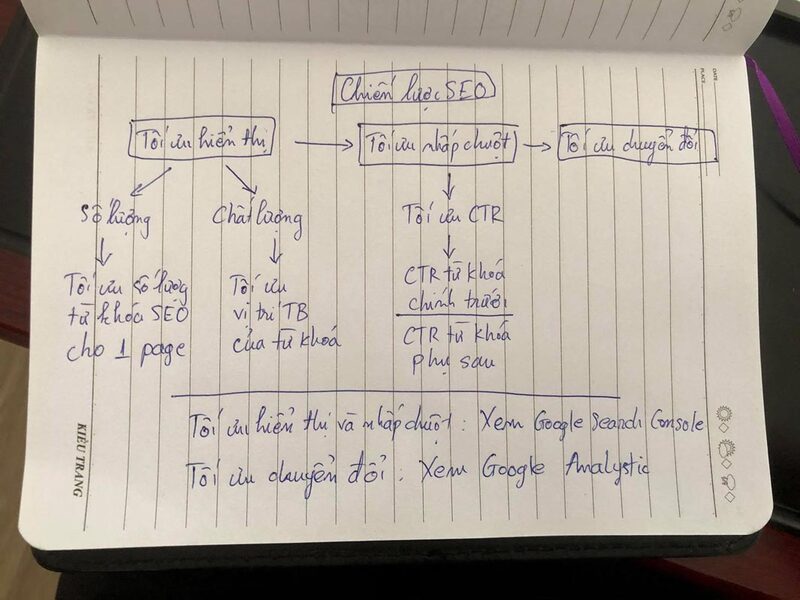 DATE
PLACE
Chiến lược SEO
Tối ưu hiển thị
Tối ưu nhấp chuột
Tối ưu chuyển đổi
Số lượng
Chất lượng
Tối ưu CTR
Tối ưu số lượng
từ khóa SEO
cho 1 page
Tối ưu
vị trí TB
của từ khoá
CTR từ khoá
chính trước
CTR từ khoá
phụ sau
Tối ưu hiển thị và nhấp chuột : Xem Google Search Console
Tối ưu chuyển đổi : Xem Google Analystic
KIỀU TRANG